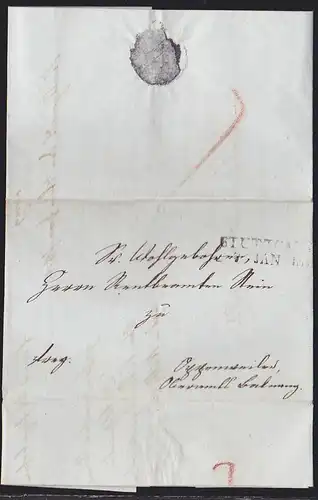 STUTTG
JAN
Sr. Wohlgebohren,
Herrn Rentbeamten Stein
zu
Oppenweiler,
Oberamts Baknang.